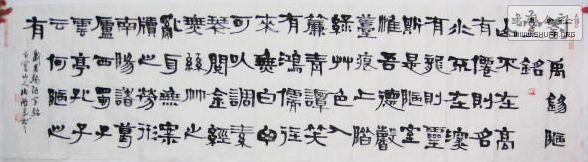 劉禹錫陋
室銘
山不在高
有僊則名
水不在深
有龍則靈
斯是陋室
惟吾德馨
苔痕上階
綠艸色入
簾青談笑
有鴻儒往
來無白丁
可以調素
琴閱金經
無絲竹之
亂耳無案
牘之勞形
南陽諸葛
廬西蜀子
雲亭孔子
云何陋之
有
劉禹錫陋室銘
WWW.SHUFA.ORG